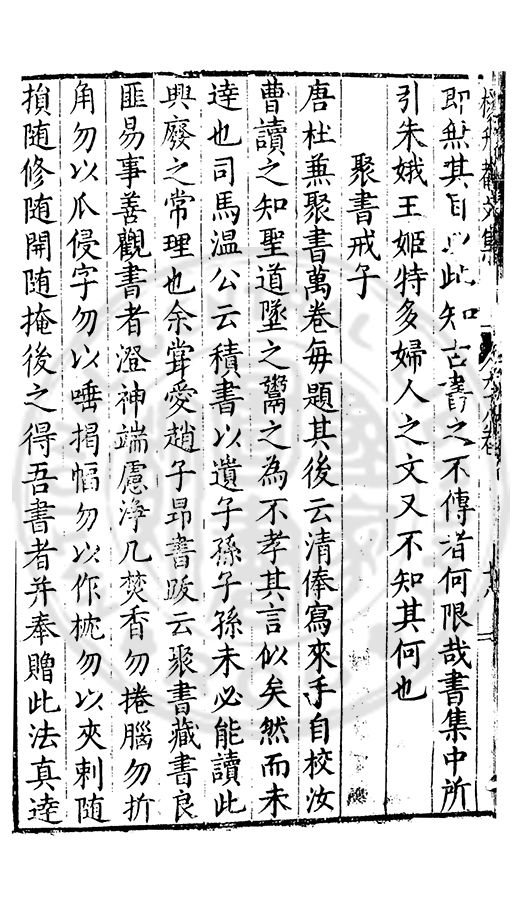 即無其目以此知古書之不傳者何限哉書集中所
引朱娥王姬特多婦人之文又不知其何也
聚書戒子
唐杜兼聚書萬卷每題其後云清俸寫來手自校汝
曹讀之知聖道墜之鬻之為不孝其言似矣然而未
達也司馬温公云積書以遺子孫子孫未必能讀此
興廢之常理也余甞愛趙子昂書跋云聚書藏書良
匪易事善觀書者澄神端慮淨几焚香勿捲腦勿折
角勿以爪侵字勿以唾揭幅勿以作枕勿以夾剌随
損随修随開随掩後之得吾書者并奉贈此法真逹